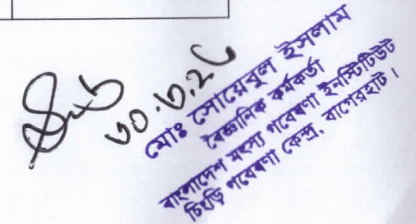 ৩০.৬.২৫
মোঃ সোয়েবুল ইসলাম
বৈজ্ঞানিক কর্মকর্তা
বাংলাদেশ মৎস্য গবেষণা ইনস্টিটিউট
চিংড়ি গবেষণা কেন্দ্র, বাগেরহাট।